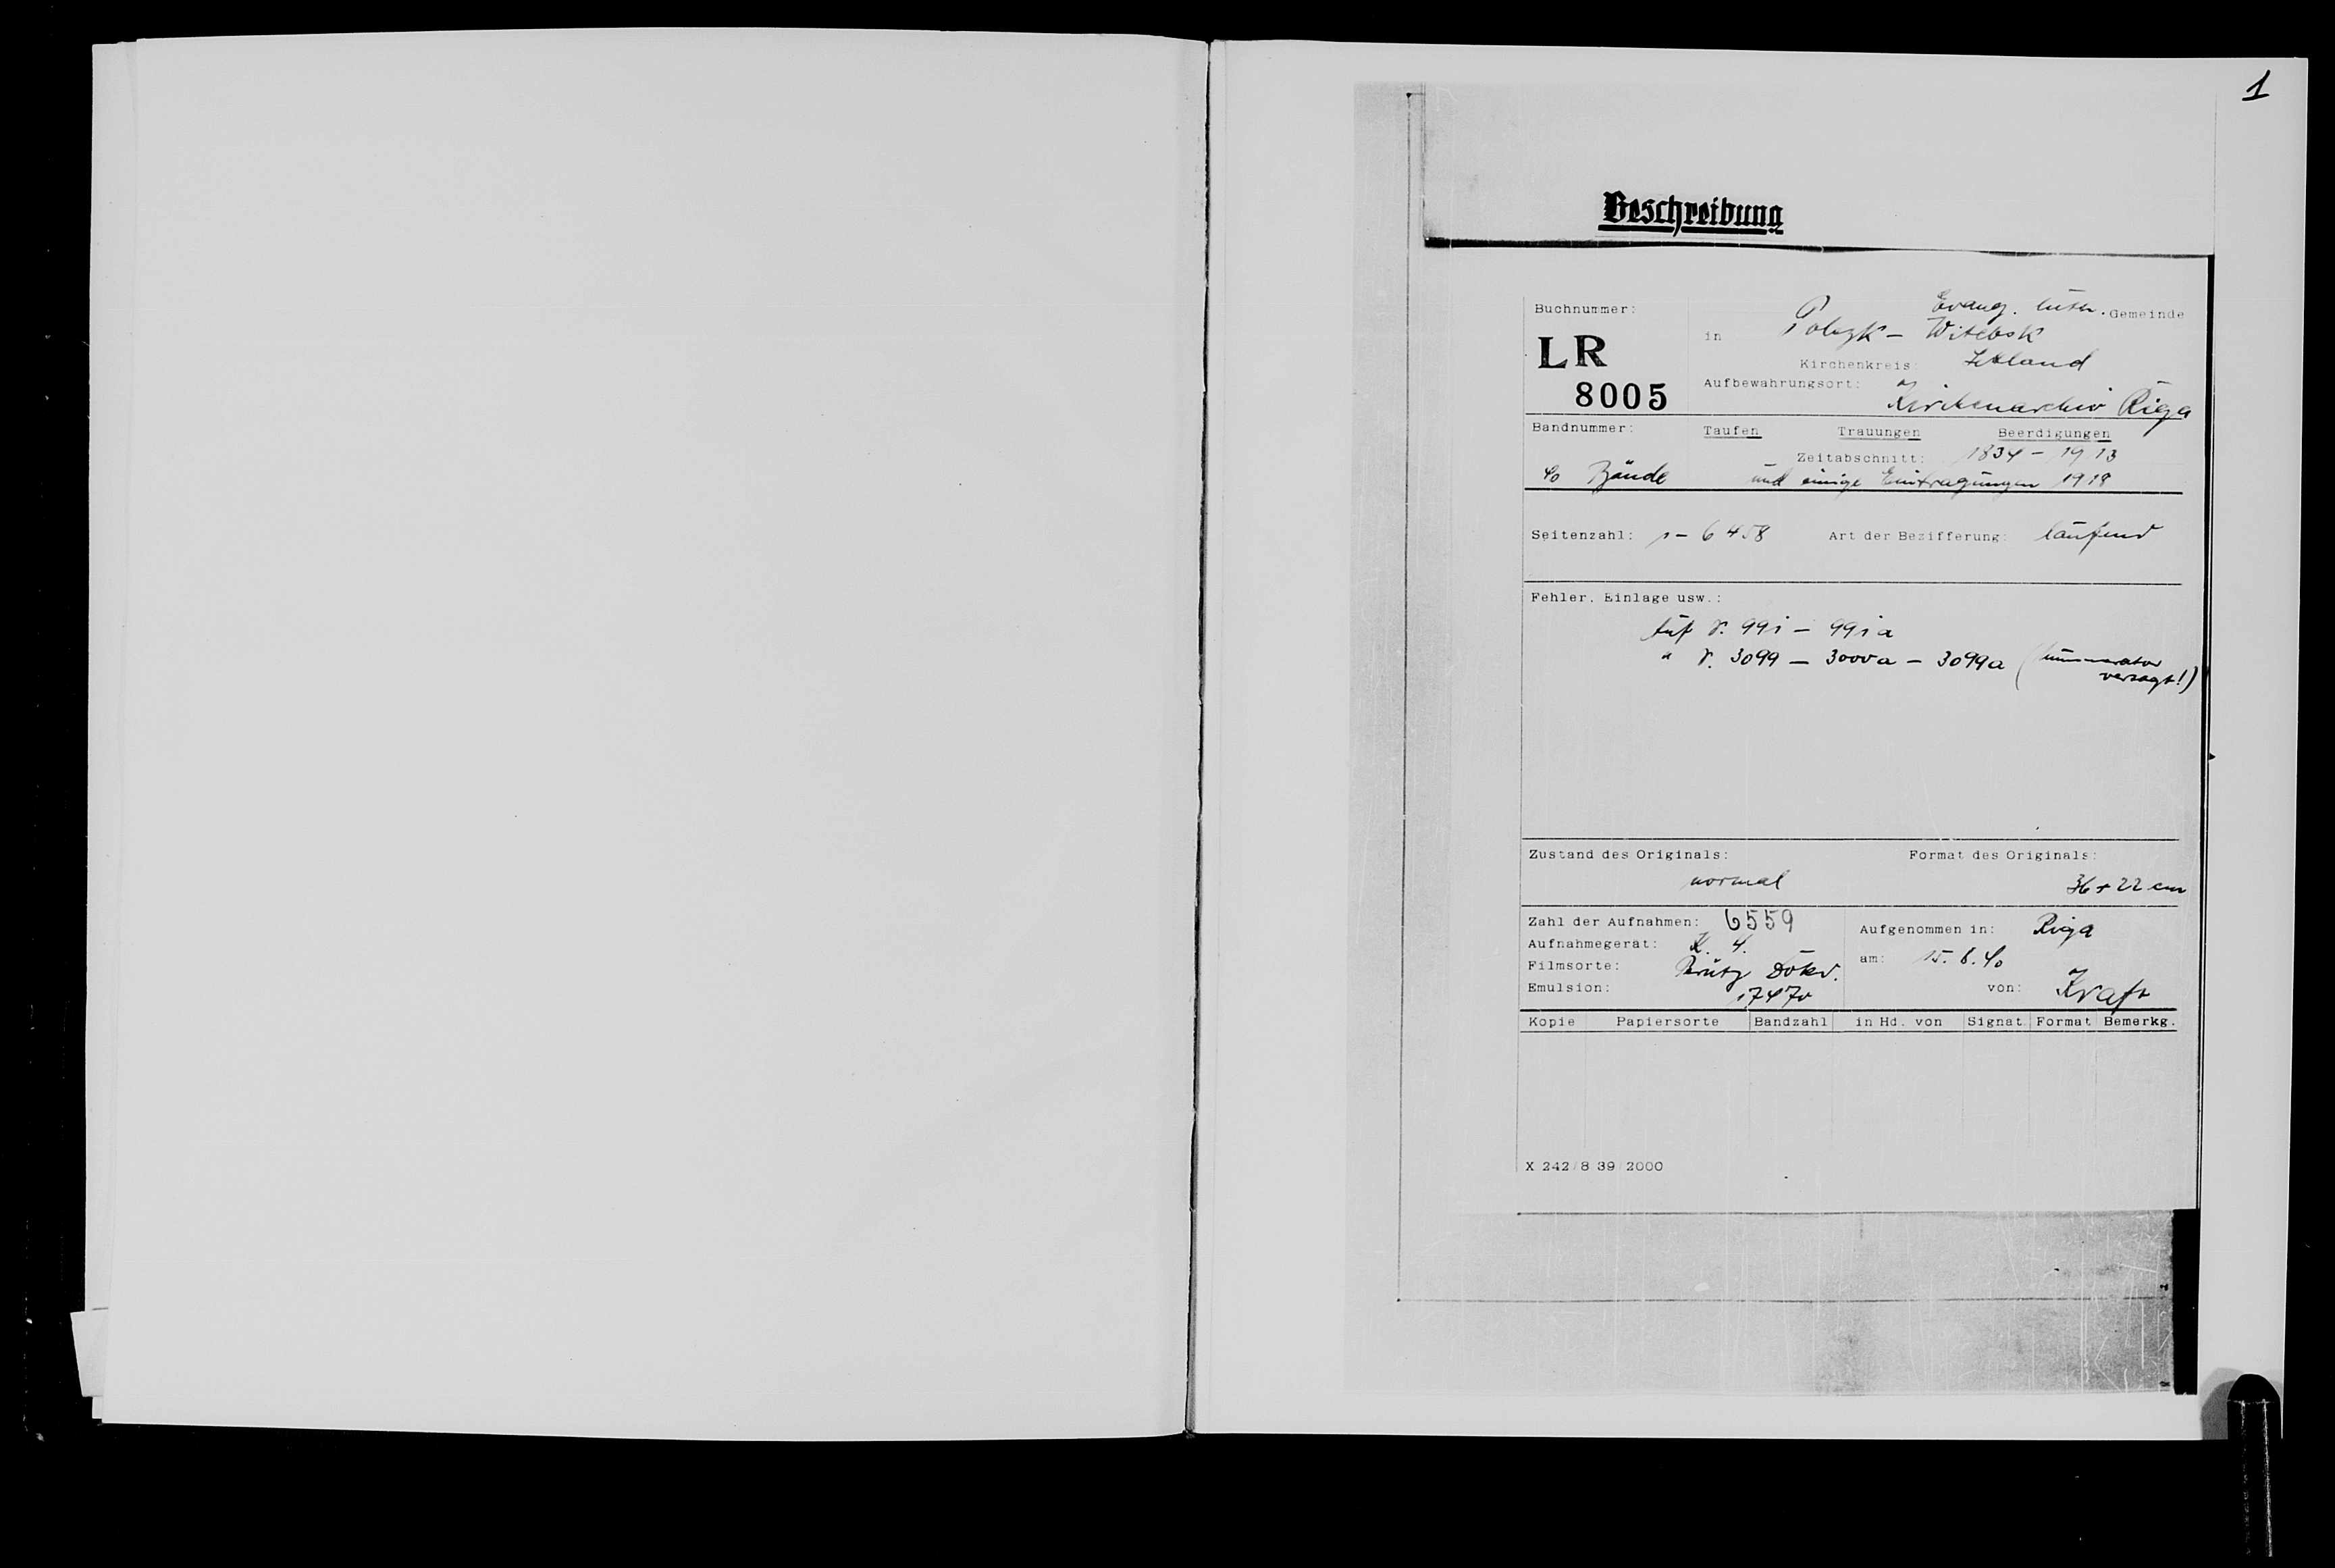 1
Beschreibung
Buchnummer:
LR
8005
Evang. luth. Gemeinde
in Polozk - Witebsk
Kirchenkreis:
Aufbewahrungsort: Kirchenarchiv Riga
Bandnummer: Taufen Trauungen Beerdigungen
Zeitabschnitt: 1834 - 1913
40 Bände und einige Eintragungen 1918
Seitenzahl: 1 - 6458 Art der Bezifferung: laufend
Fehler, Einlage usw.:
Auf S. 991 - 991a
" S. 3099 - 3000a - 3099a (Nummerator
versagt!)
Zustand des Originals: Format des Originals:
normal 36 x 22 cm
Zahl der Aufnahmen: 6559
Aufnahmegerät: K. 4.
Filmsorte: Perutz Dok.
Emulsion: 17470
Aufgenommen in: Riga
am: 15.6.40
von: Kraft
Kopie Papiersorte Bandzahl in Hd. von Signat. Format Bemerkg.
X 242/8 39/2000